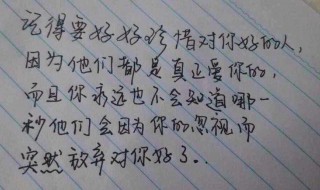 记得要好好珍惜对你好的人,
因为他们都是真正爱你的,
而且你永远也不会知道哪一
秒他们会因为你的忽视而
突然放弃对你好了..